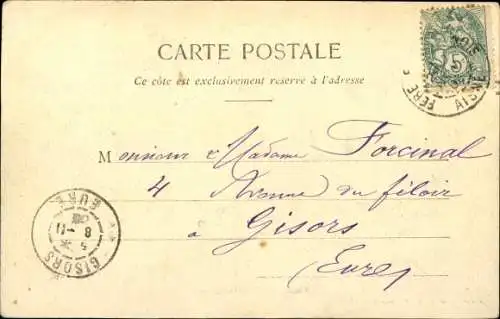 CARTE POSTALE
Ce côte est exclusivement reserve à l'adresse
Monsieur & Madame Forcinal
4 Avenue du
à Gisors
(Eure)
5
FERE
AISNE
GISORS
EURE
5
8 -11